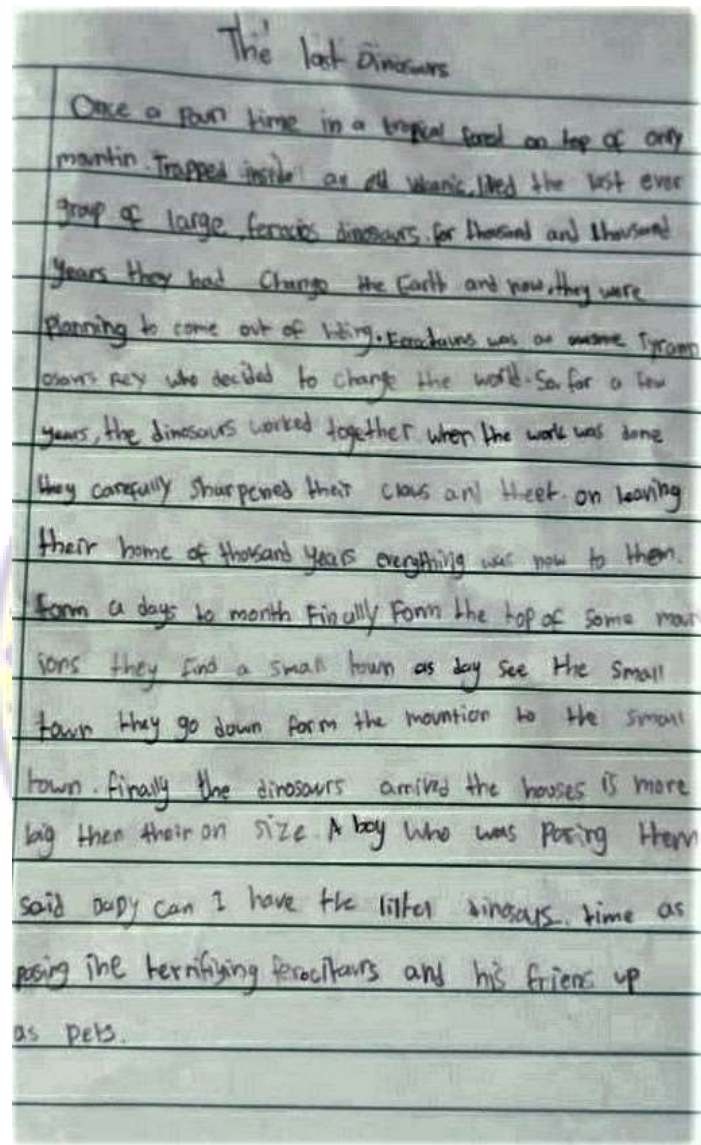 The last Dinosaurs
Once a poun time in a tropical forest on top of only
mountin. Trapped inside an old volcanic, lived the last ever
group of large, ferocies dinosaurs. for thousand and thousand
years they had Change the Earth and now, they were
planning to come out of hiding. was an awsome Tyrann
osaurs Rex who decided to change the world. So, for a few
years, the dinosaurs worked together when the work was done
they carefully sharpened their claws and theet. on leaving
their home of thousand years everything was now to them.
form a days to month Finally Form the top of some moun
ions they find a small town as day see the small
town they go down form the mountion to the small
town. finally the dinosaurs arrived the houses is more
big then their on size. A boy who was Pasing them
said DaDy can I have the littel dinosaurs. time as
pasing the terrifiying ferocitaurs and his friens up
as pets.